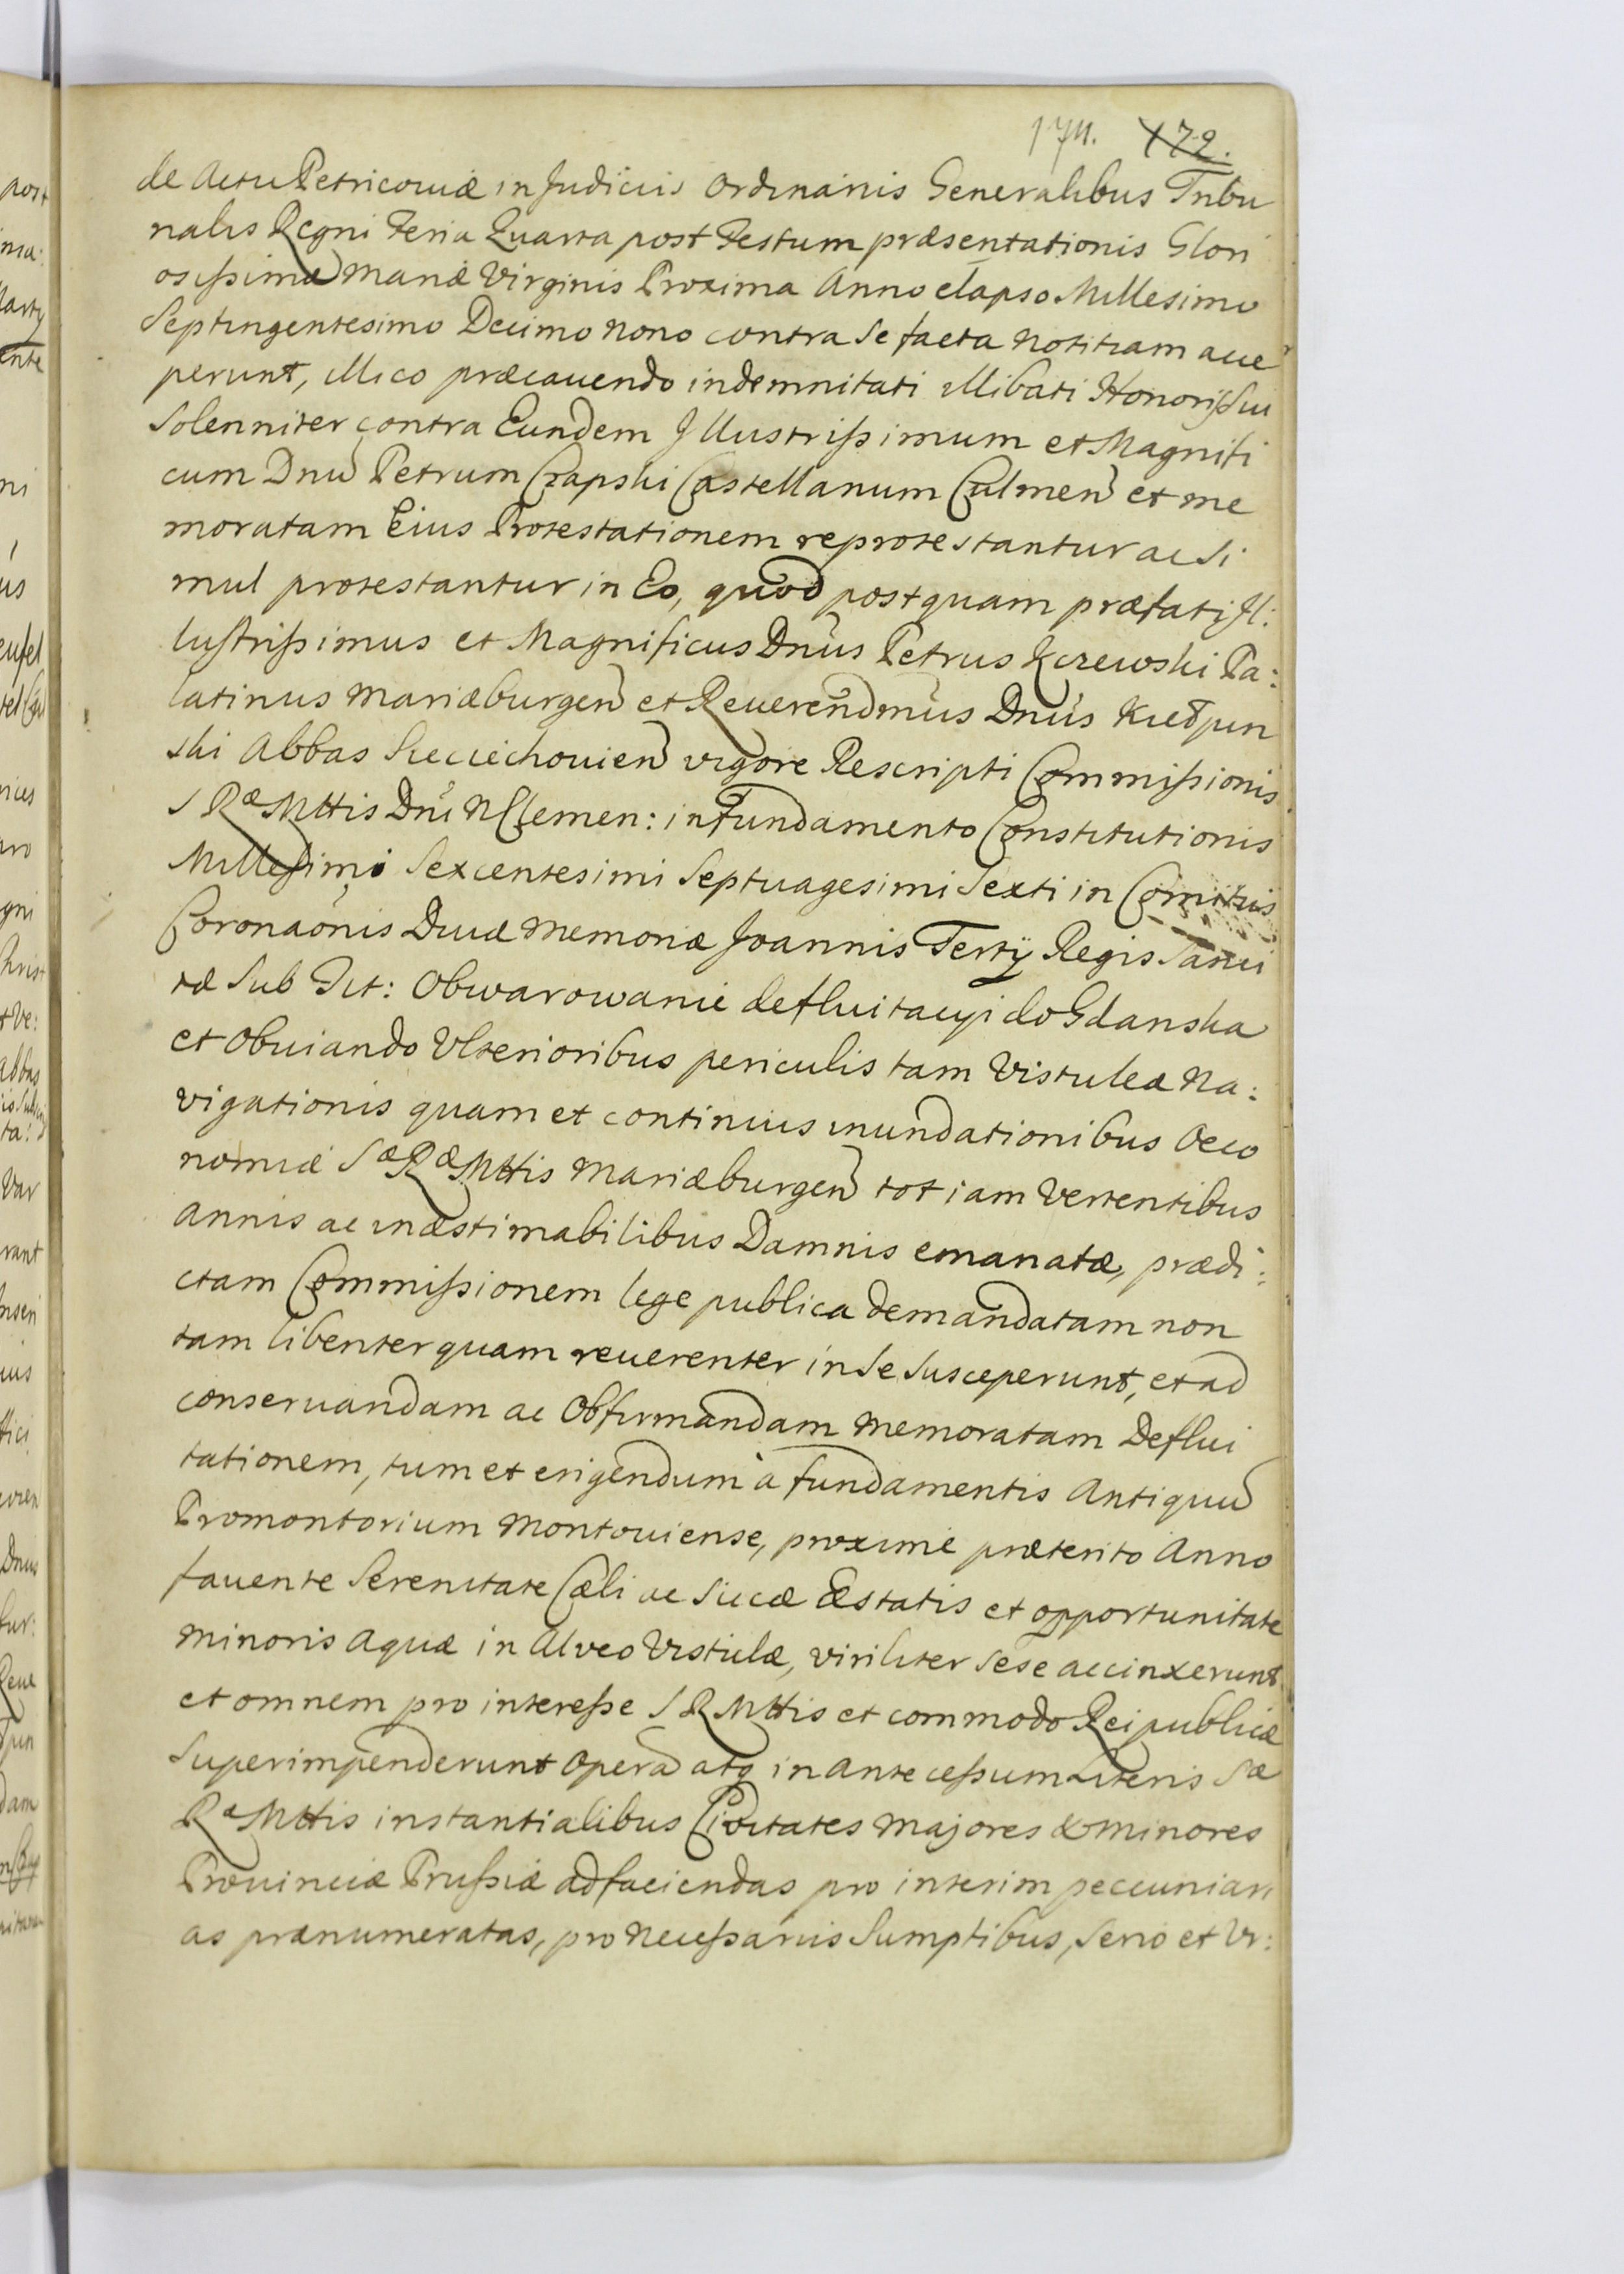 174. 172.
de Actu Petricoviæ in Judiciis Ordinariis Generalibus Tribu
nalis Regni Feria Quarta post Festum præsentationis Glori
osissimæ Mariæ Virginis Proxima Anno elapso Millesimo
Septingentesimo Decimo Nono contra se facta Notitiam acce
perunt, illico præcavendo indemnitati illibati Honoris Sui
Solenniter contra Eundem Illustrissimum et Magnifi
cum Dnu Petrum Czapski Castellanum Culmen et me
moratam Eius Protestationem reprotestantur ac Si
mul protestantur in Eo, quod postquam præfati Il:
lustrissimus et Magnificus Dnus Petrus Kczewski Pa:
latinus Mariæburgen et Reverendmus Dnus Kretpin
ski Abbas Sieciechovien vigore Rescripti Commissionis
S Ræ Mttis Dni N Clemen: in Fundamento Constitutionis
Millesimi Sexcentesimi Septuagesimi Sexti in Comitiis
Coronaonis Divæ Memoriæ Joannis Tertij Regis Sanci
tæ Sub Tit: Obwarowanie defluitacyi do Gdanska
et Obviando Ulterioribus periculis tam Vistuleæ Na:
vigationis quam et continuis inundationibus Oeco
nomiæ Sæ Ræ Mttis Mariæburgen tot iam Vertentibus
Annis ac inæstimabilibus Damnis emanatæ, prædi:
ctam Commissionem lege publica demandatam non
tam libenter quam reverenter in Se Susceperunt, et ad
conservandam ac Obfirmandam Memoratam Deflui
tationem, tum et erigendum à fundamentis Antiquu
Promontorium Montoviense, proxime præterito Anno
favente Serenitate Cæli ac Siccæ Æstatis et opportunitate
Minoris Aquæ in Alveo Vistulæ, viriliter Sese accinxerunt
et omnem pro interesse S R Mttis et commodo Reipublicæ
Superimpenderunt Opera atq in Antecessum Literis Sæ
Ræ Mttis instantialibus Civitates Majores & Minores
Provinciæ Prussiæ ad faciendas pro interim peccuniari
as prænumeratas, pro Necessariis Sumptibus, serio et Vr: